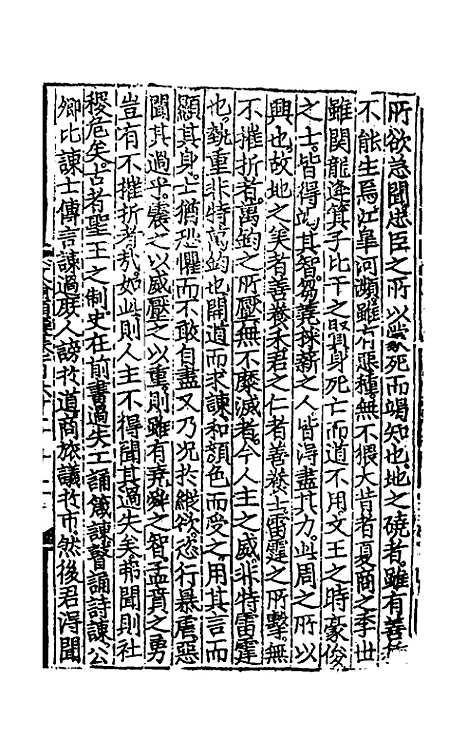 所欲急聞忠臣之所以蒙死而竭知也地之磽者雖有善
不能生焉江皐河瀕雖有惡種無不猥大昔者夏商之季世
雖関龍逢箕子比干之賢身死亡而道不用文王之時豪俊
之士皆得竭其智芻蕘採薪之人皆得盡其力此周之所以
興也故地之美者善養禾君之仁者善養士雷霆之所擊無
不摧折者萬鈞之所壓無不糜滅者今人主之威非特雷霆
也勢重非特萬鈞也開道而求諫和顔色而受之用其言而
顯其身士猶恐懼而不敢自盡又乃况扵縱欲恣行暴虐惡
聞其過乎震之以威壓之以重則雖有堯舜之智孟賁之勇
豈有不摧折者㢤如此則人主不得聞其過失矣弗聞則社
稷危矣古者聖王之制史在前書過失工誦箴諫瞽誦詩諫公
卿比諫士傳言諫過庶人謗扵道商旅議扵市然後君得聞